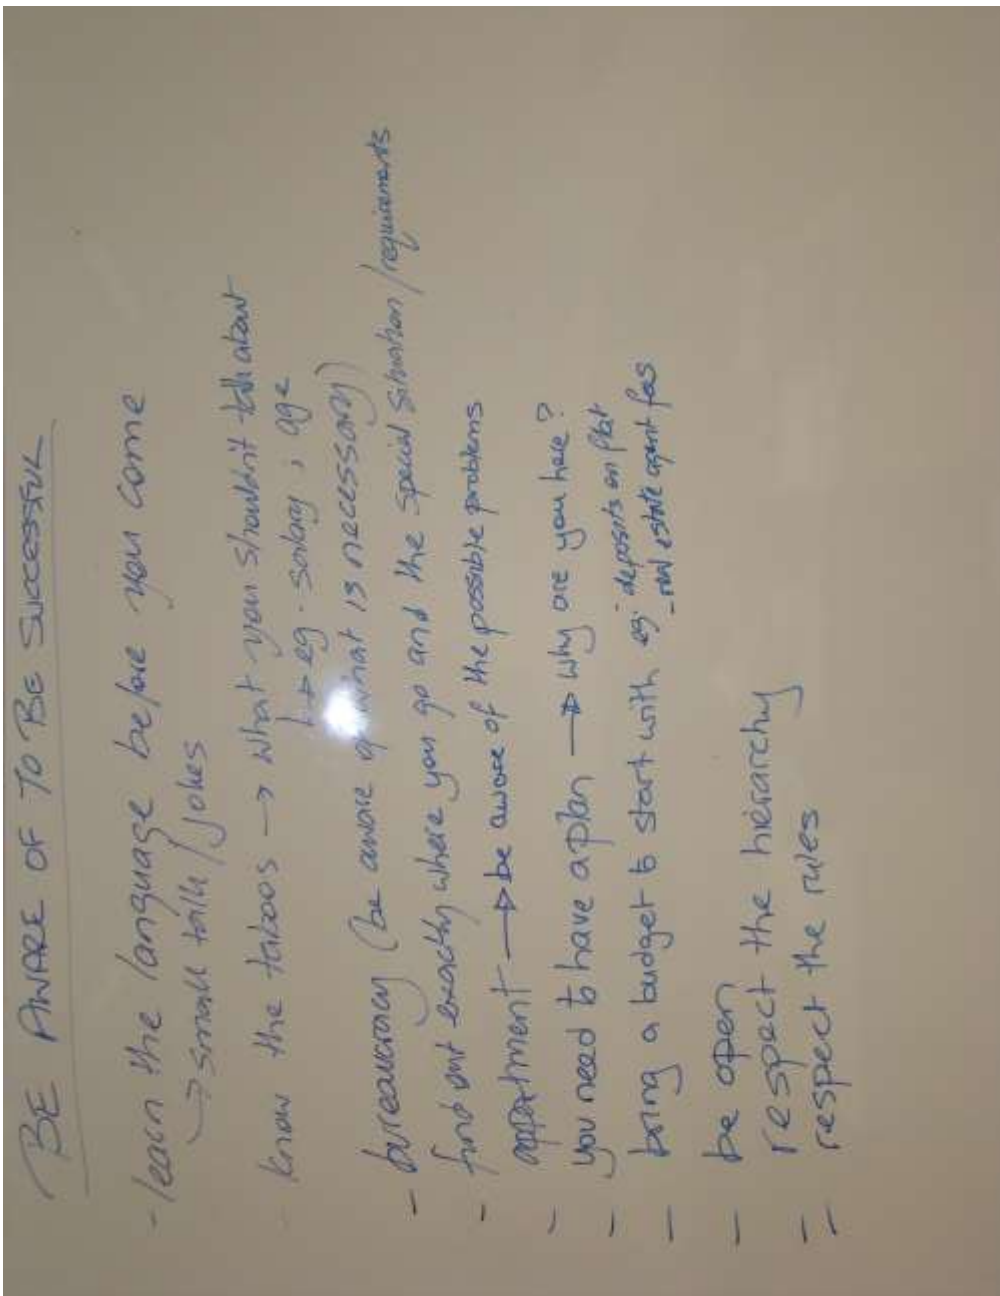 BE AWARE OF TO BE SUCCESSFUL
- learn the language before you come
→ small talk / jokes
- know the taboos → what you shouldn't talk about
↳ eg. salary, age
- bureaucracy (be aware of what is necessary)
- find out exactly where you go and the special situation/requirements
- appartment → be aware of the possible problems
- you need to have a plan → why are you here?
- bring a budget to start with eg. - deposits on flat
- real estate agent fees
- be open
- respect the hierarchy
- respect the rules